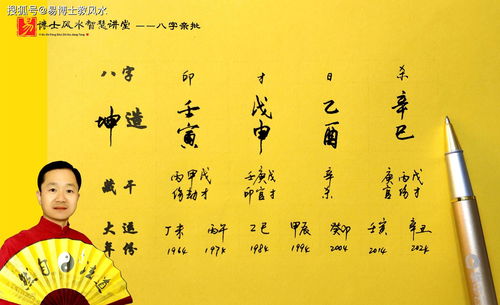 搜狐号@易博士教风水
易博士风水智慧讲堂 ——八字亲批
八字 印 才 日 杀
坤造 壬寅 戊申 乙酉 辛巳
藏干 丙甲戊 壬庚戊 辛 庚丙戊
伤劫才 印官才 杀 官伤才
大运 丁未 丙午 乙巳 甲辰 癸卯 壬寅 辛丑
年份 1964 1974 1984 1994 2004 2014 2024
然自法道